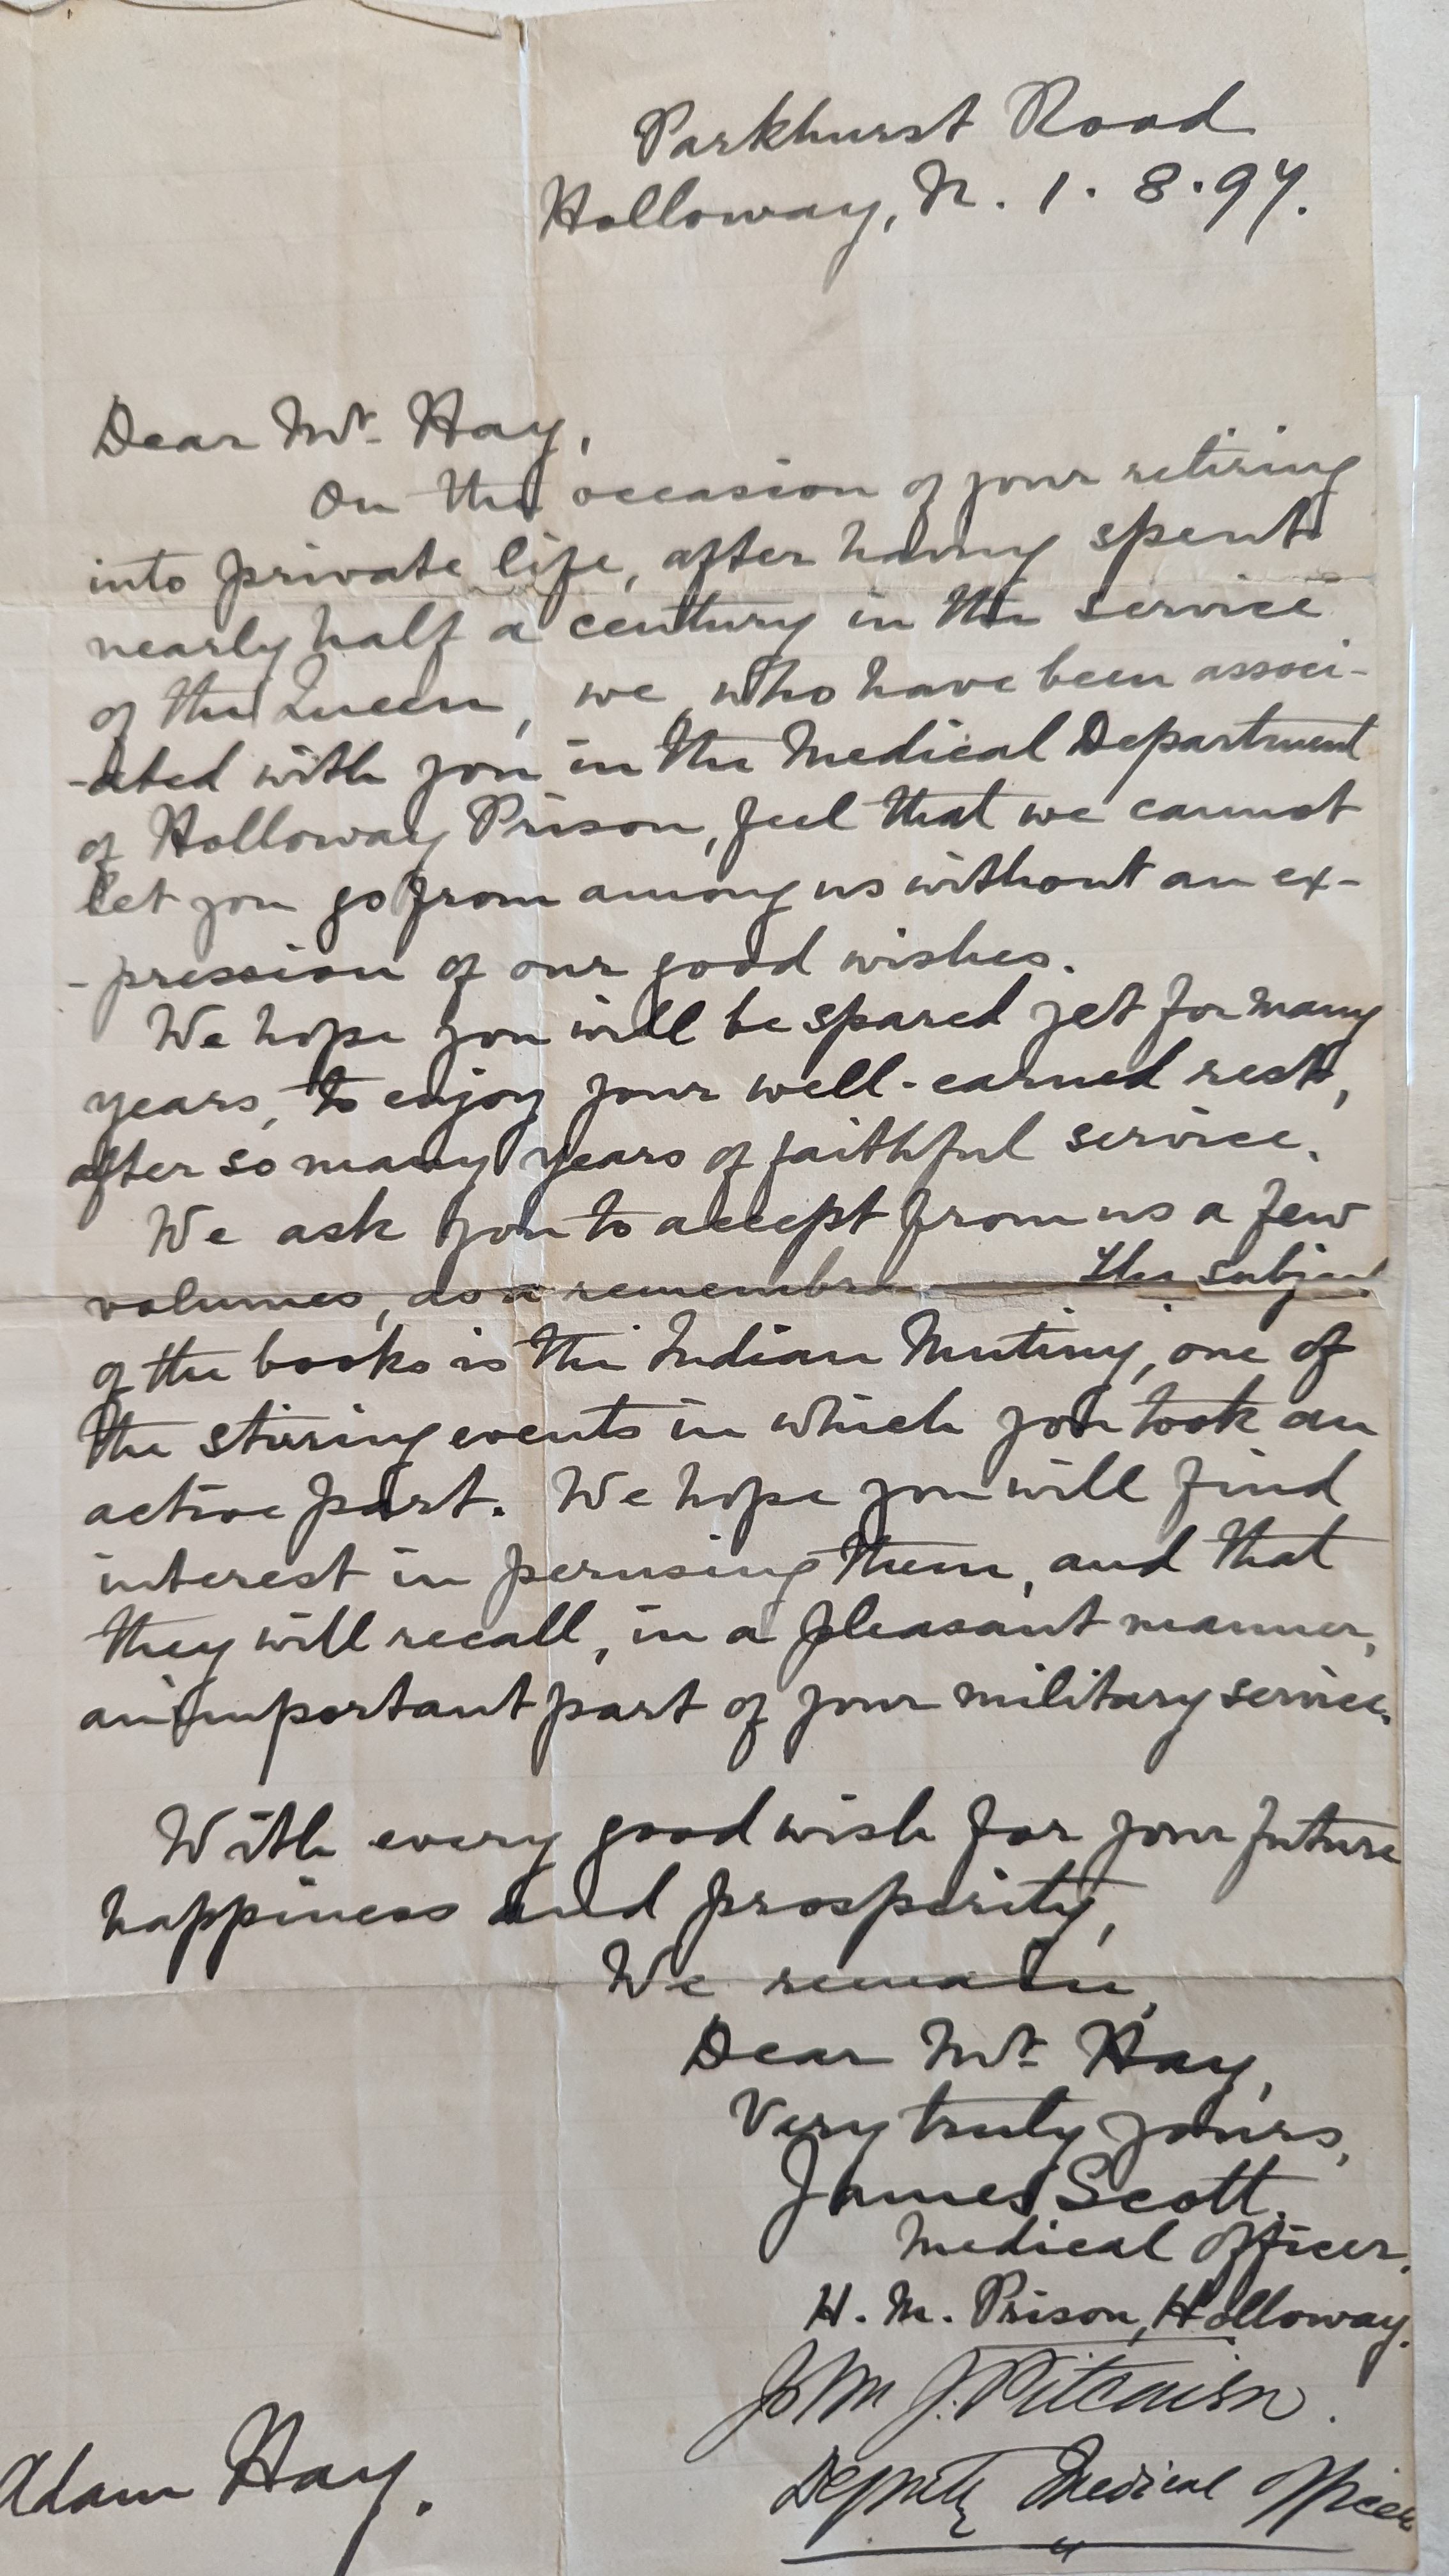 Parkhurst Road
Holloway, N. 1. 8. 97.
Dear Mr. Hay,
On the occasion of your retiring
into private life, after having spent
nearly half a century in the service
of the Queen, we, who have been associ-
-ated with you in the Medical Department
of Holloway Prison, feel that we cannot
let you go from among us without an ex-
-pression of our good wishes.
We hope you will be spared yet for many
years, to enjoy your well-earned rest,
after so many years of faithful service.
We ask you to accept from us a few
volumes, as a remembra The subject
of the books is the Indian Mutiny, one of
the stirring events in which you took an
active part. We hope you will find
interest in perusing them, and that
they will recall, in a pleasant manner,
an important part of your military service.
With every good wish for your future
happiness and prosperity,
We remain,
Dear Mr. Hay,
Very truly yours,
James Scott.
Medical Officer.
H. M. Prison, Holloway.
John J. Pitcairn.
Deputy Medical Officer
Adam Hay.